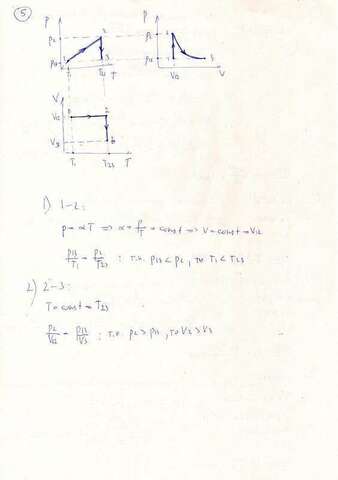 5
P
P
P2
2
P2
2
P13
1
3
P13
1
3
T1
T23
T
V12
V
V
V12
1
2
V3
3
T1
T23
T
1) 1-2:
p = αT ⇒ α = p/T = const ⇒ V = const = V12
p13/T1 = p2/T23 : т.к. p13 < p2, то T1 < T23
2) 2-3:
T = const = T23
p2/V12 = p13/V3 : т.к. p2 > p13, то V2 > V3